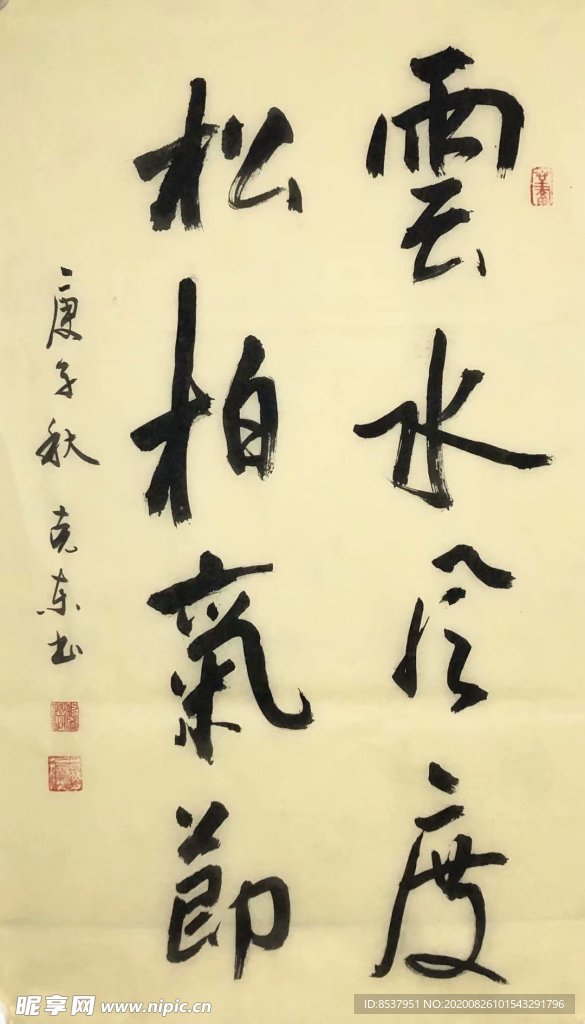 雲水风度
松柏氣節
庚子秋 克东书
昵享网 www.nipic.cn
ID:8537951 NO:20200826101543291796